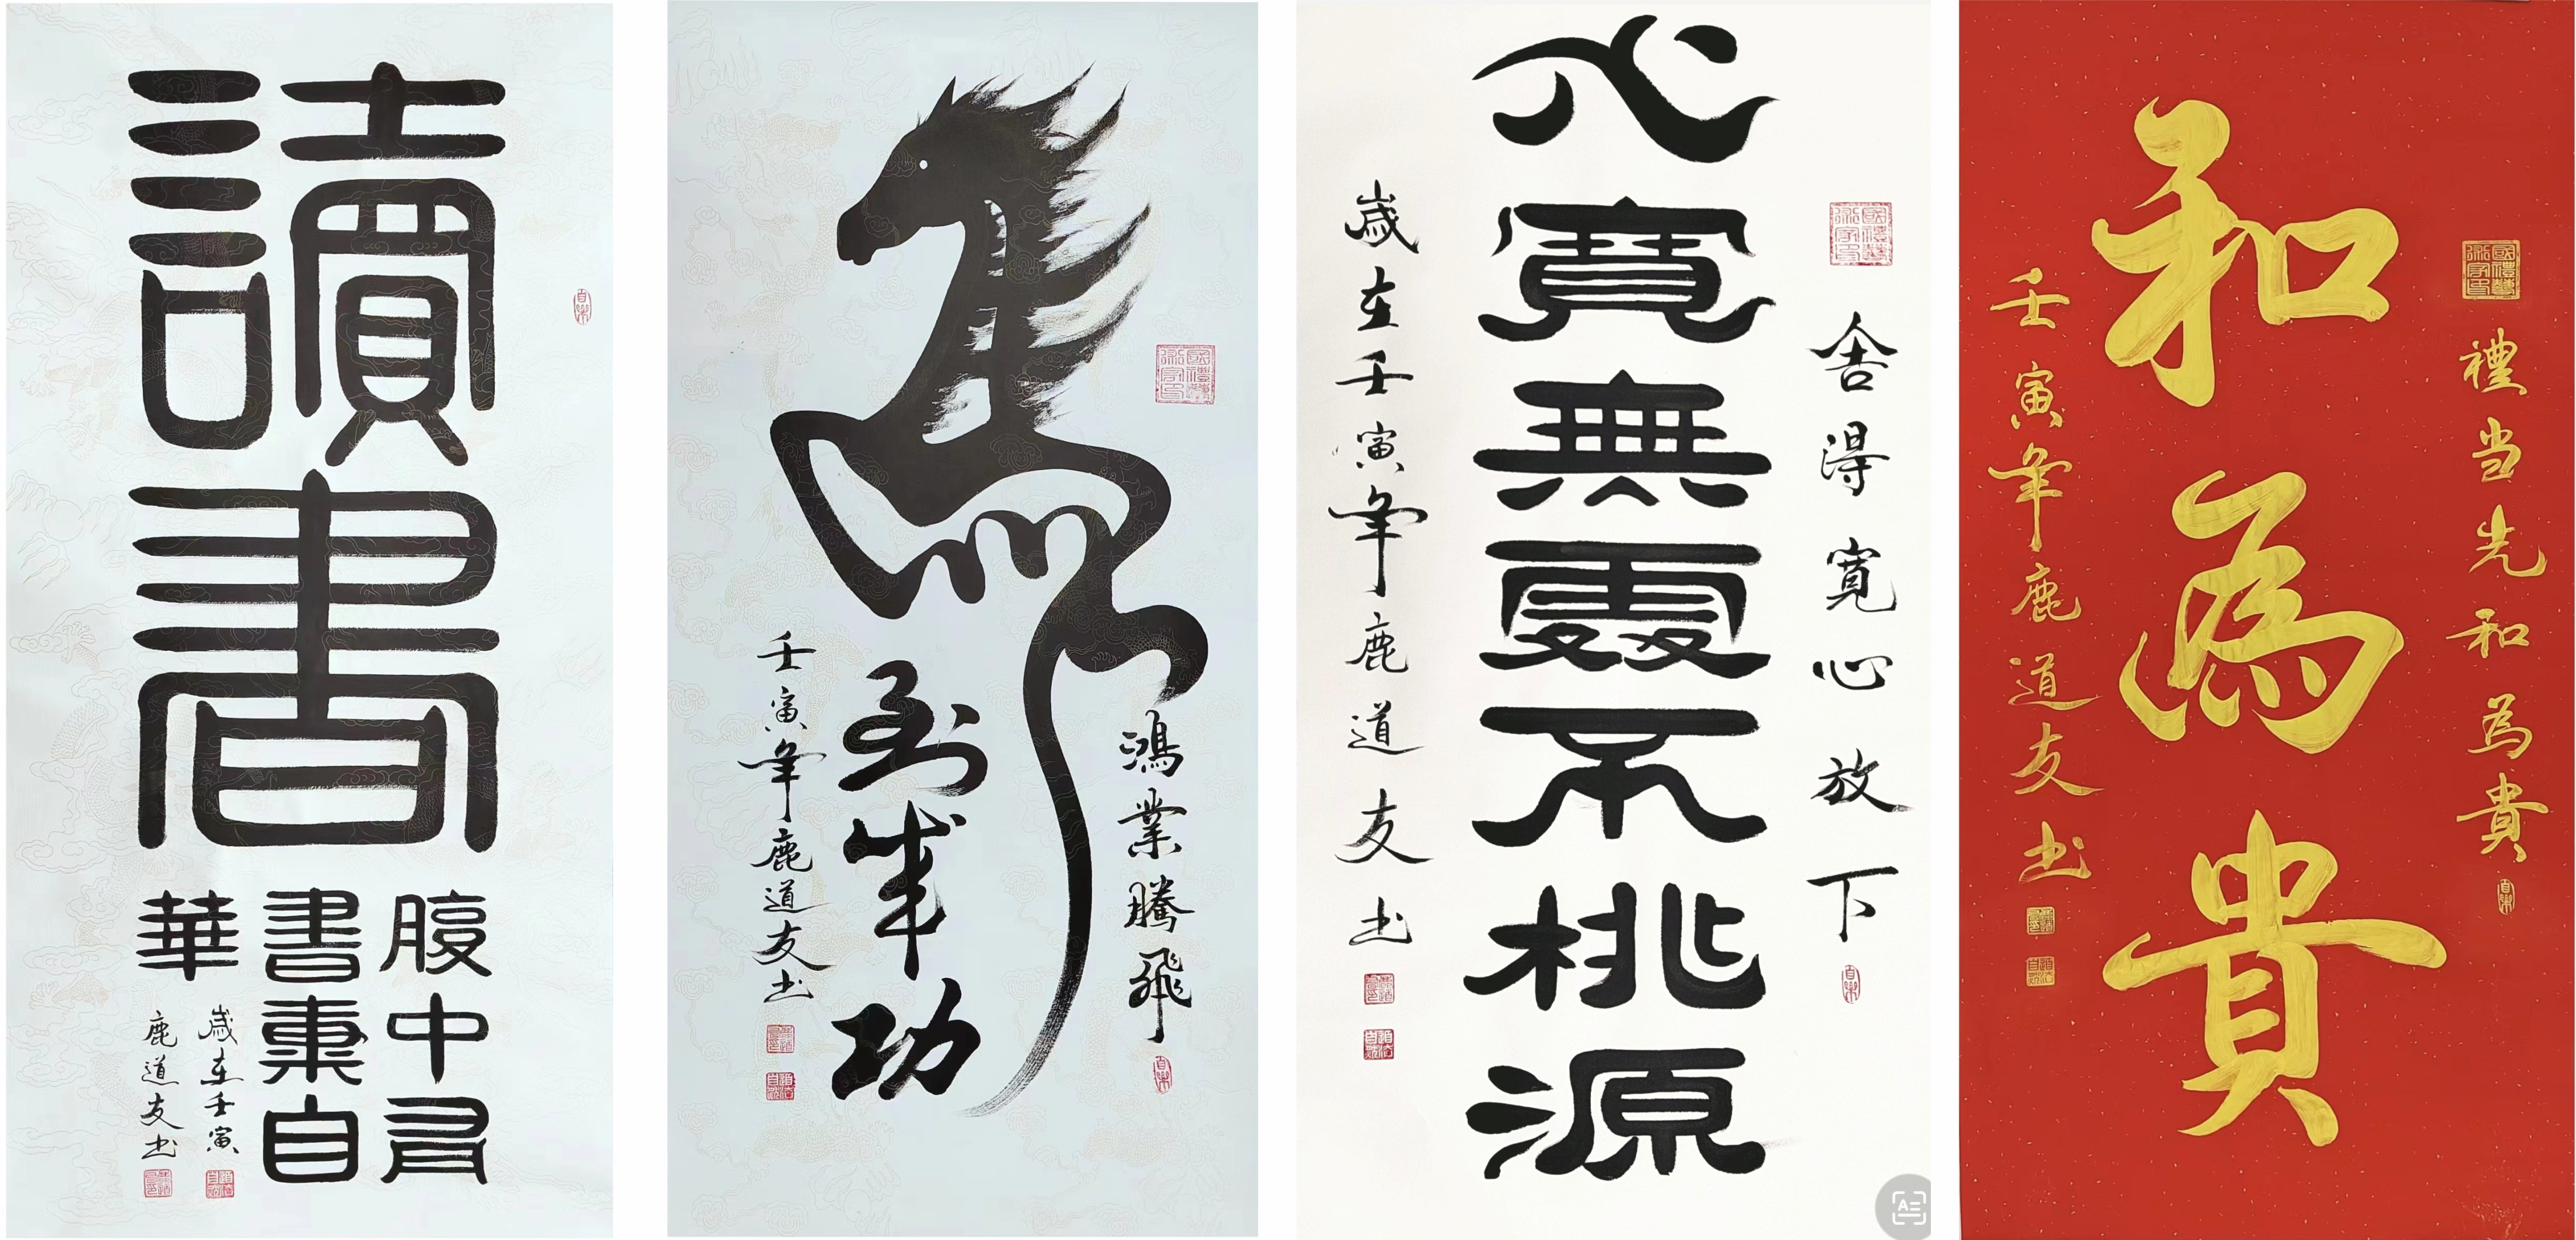 讀書
腹中有
書自
華
歲在壬寅
鹿道友书
鴻業騰飛
馬到成功
壬寅年鹿道友书
舍得寬心放下
心寬無處不桃源
歲在壬寅年鹿道友书
禮当先和為貴
和為貴
壬寅年鹿道友书